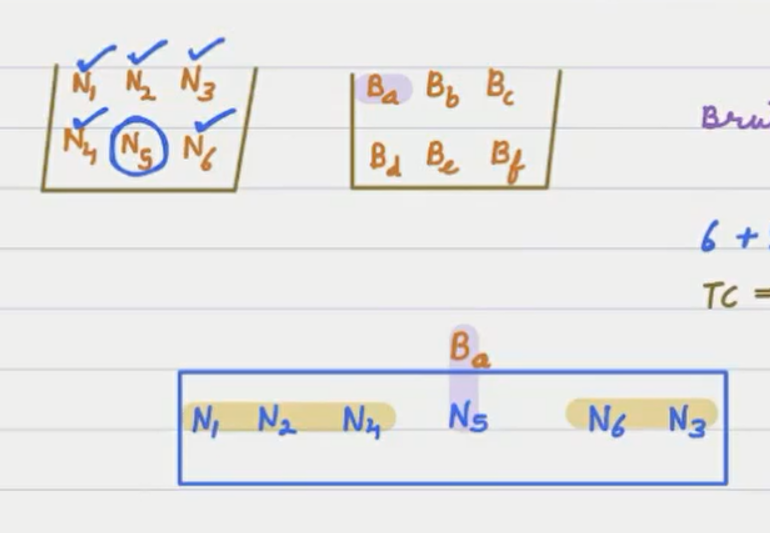 N1 N2 N3
N4 N5 N6
Ba Bb Bc
Bd Be Bf
6 +
TC =
Ba
N1 N2 N4 N5 N6 N3